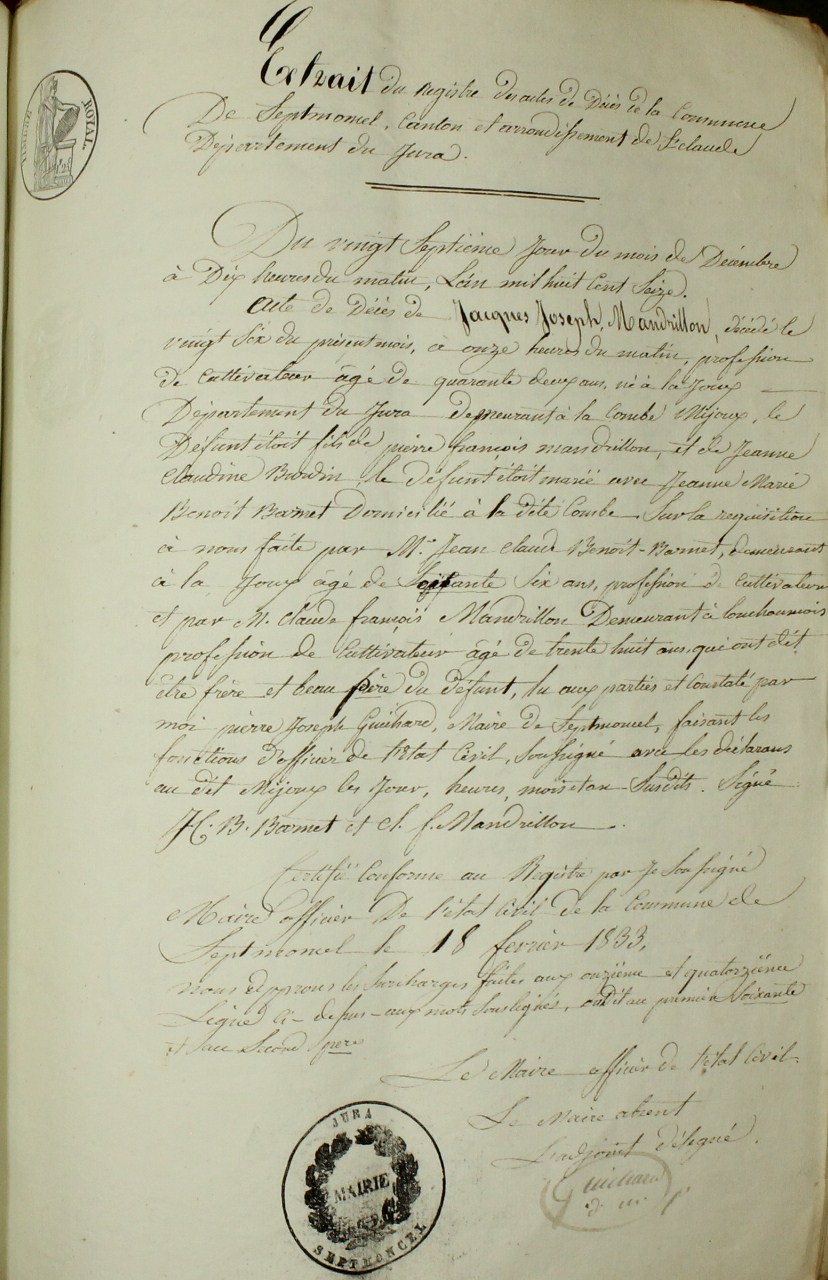 TIMBRE ROYAL
Extrait du Registre des actes de Décès de la Commune
De Septmoncel, Canton et arrondissement de St Claude
Département du Jura.
Du vingt Septième Jour du mois de Décembre
à Dix heures du matin, L'an mil huit Cent Seize.
Acte de Décès de Jacques Joseph Mandrillon, décédé le
vingt Six du présent mois, à onze heures du matin, profession
de Cultivateur âgé de quarante deux ans, né à la Joux
Département du Jura demeurant à la Combe Mijoux, le
Défunt étoit fils de pierre françois mandrillon, et de Jeanne
Claudine Burdin, le défunt étoit marié avec Jeanne Marie
Benoit Barnet Domicilié à la dite Combe. Sur la requisition
à nous faite par Mr. Jean Claude Benoit-Barnet, demeurant
à la Joux âgé de Soixante Six ans, profession de Cultivateur
et par M. Claude françois Mandrillon Demeurant à Lonchaumois
profession de Cultivateur âgé de trente huit ans, qui ont dit
être frère et beau père du défunt, lu aux parties et Constaté par
moi pierre Joseph Guichard, Maire de Septmoncel, faisant les
fonctions d'officier de l'état Civil, Soussigné avec les déclarans
au dit Mijoux les Jour, heures, mois et an Susdits. Signé
J. C. B. Barnet et Cl. f. Mandrillon.
Certifié Conforme au Registre par Je Soussigné
Maire officier De l'état Civil de la Commune de
Septmoncel le 18 fevrier 1833,
nous approuvons les Surcharges faites aux onzième et quatorzième
Ligne Ci-dessus aux mots Soulignés, au premier Soixante
et au Second père
Le Maire officier de l'état Civil
Le Maire absent
L'adjoint délégué.
JURA
MAIRIE
SEPTMONCEL